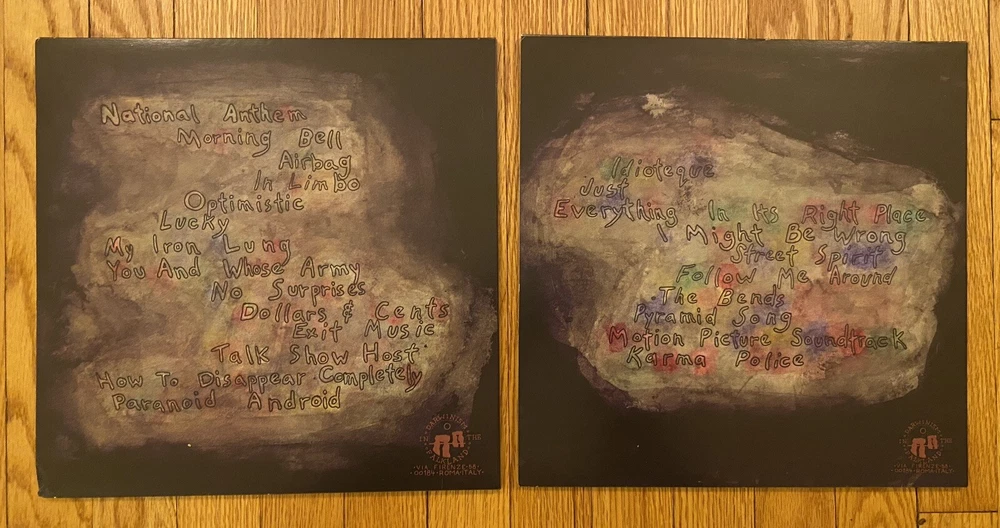 National Anthem
Morning Bell
Airbag
In Limbo
Optimistic
Lucky
My Iron Lung
You And Whose Army
No Surprises
Dollars & Cents
Exit Music
Talk Show Host
How To Disappear Completely
Paranoid Android
IN THE
VIA FIRENZE 58
00184 ROMA ITALY
Idioteque
Just
Everything In Its Right Place
I Might Be Wrong
Street Spirit
Follow Me Around
The Bends
Pyramid Song
Motion Picture Soundtrack
Karma Police
IN THE
VIA FIRENZE 58
00184 ROMA ITALY